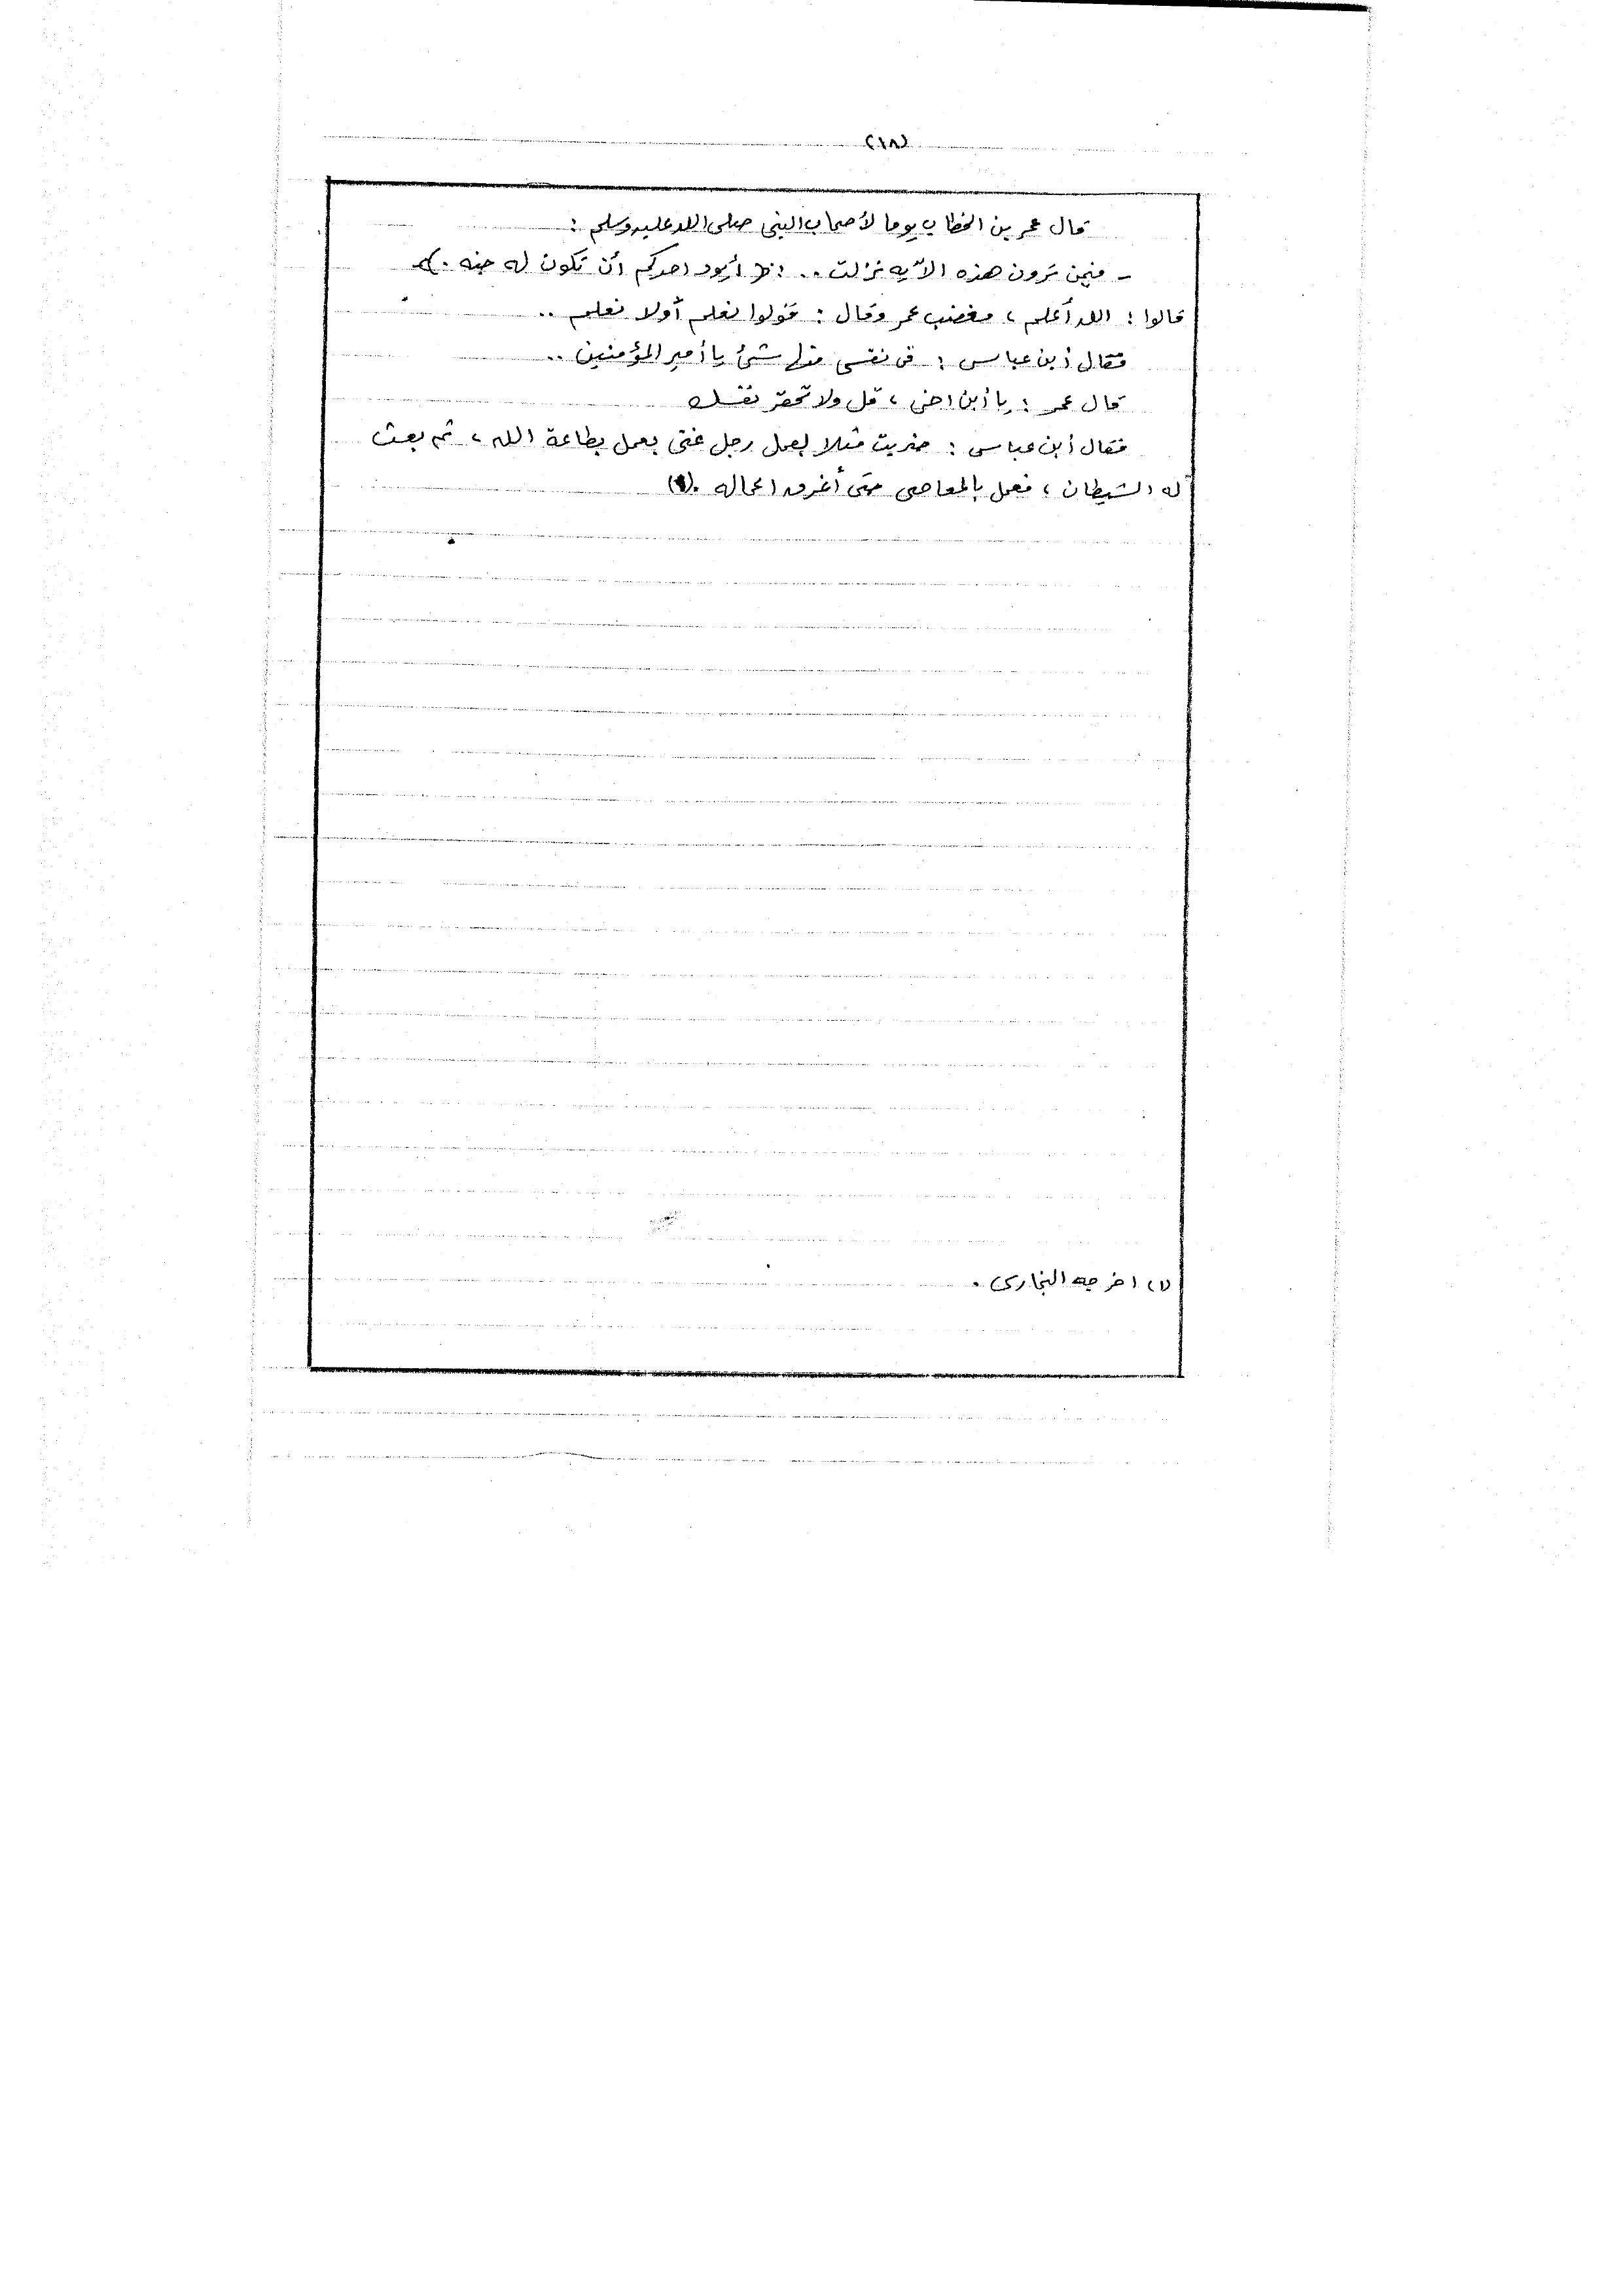 (١٨)
قال عمر بن الخطاب يوما لأصحاب النبى صلى الله عليه وسلم :
- فيمن ترون هذه الآيه نزلت .. : « أيود احدكم أن تكون له جنه . »
قالوا : الله أعلم ، فغضب عمر وقال : قولوا نعلم أولا نعلم ..
فقال أبن عباس : فى نفسى منها شئ يا أمير المؤمنين ..
قال عمر : يا أبن اخى ، قل ولا تحقر نفسك
فقال أبن عباس : ضربت مثلا لعمل رجل غنى يعمل بطاعة الله ، ثم بعث
له الشيطان ، فعمل بالمعاصى حتى أغرق اعماله . (١)
(١) اخرجه البخارى .